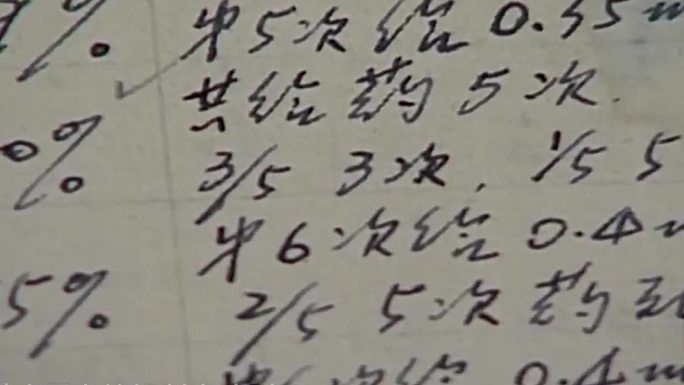 % 第5次给 0.35m
共给药 5次.
0% 3/5 3次, 1/5 5
第6次给 0.4
5% 2/5 5次药
次给 0.4m